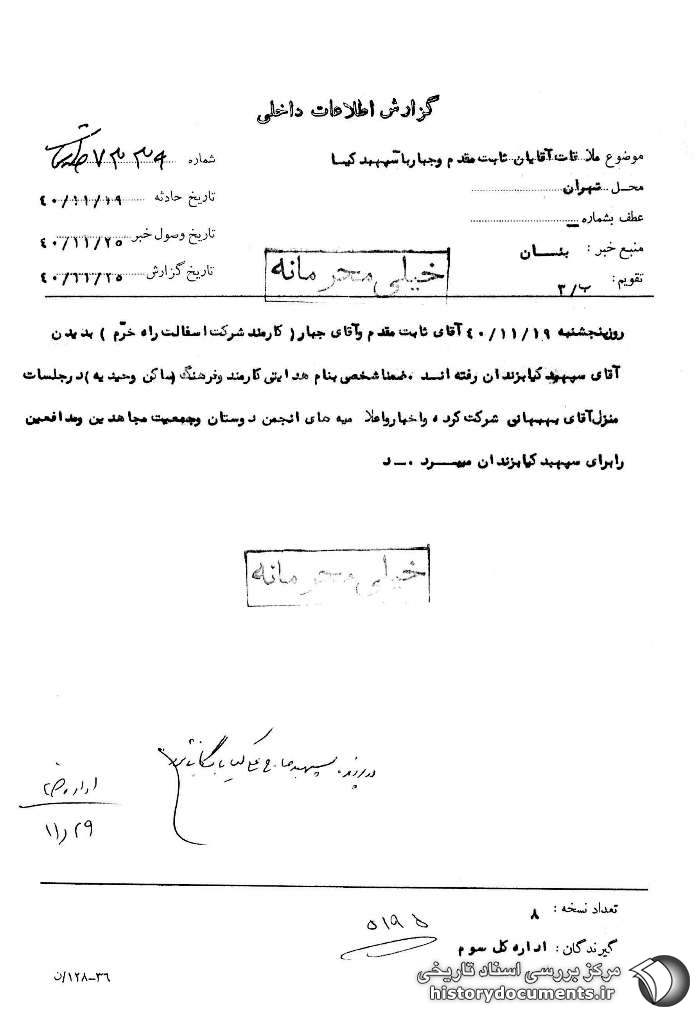 گزارش اطلاعات داخلی
موضوع ملاقات آقایان ثابت مقدم وجبار با سپهبد کیا
شماره ۷۳۳۹
محل تهران
تاریخ حادثه ۴۰/۱۱/۱۹
عطف بشماره
تاریخ وصول خبر ۴۰/۱۱/۲۵
منبع خبر : بتسان
تاریخ گزارش ۴۰/۱۱/۲۵
تقویم : ب/۳
خیلی محرمانه
روز پنجشنبه ۴۰/۱۱/۱۹ آقای ثابت مقدم وآقای جبار ( کارمند شرکت اسفالت راه خرّم ) بدیدن
آقای سپهبد کیا بزندان رفته اند . ضمنا شخصی بنام هدایتی کارمند وفرهنگ ( ساکن وحیدیه ) درجلسات
منزل آقای بهبهانی شرکت کرده واخبار واعلا میه های انجمن دوستان وجمعیت مجاهدین ومدافعین
را برای سپهبد کیا بزندان میبرد . ــ د
خیلی محرمانه
در پرونده سپهبد حاج علی کیا بایگانی شود
۱۱/۲۹
تعداد نسخه : ۸
گیرندگان : اداره کل سوم
۵۱۹۵
۳۶-۱۲۸/ن
مرکز بررسی اسناد تاریخی
historydocuments.ir